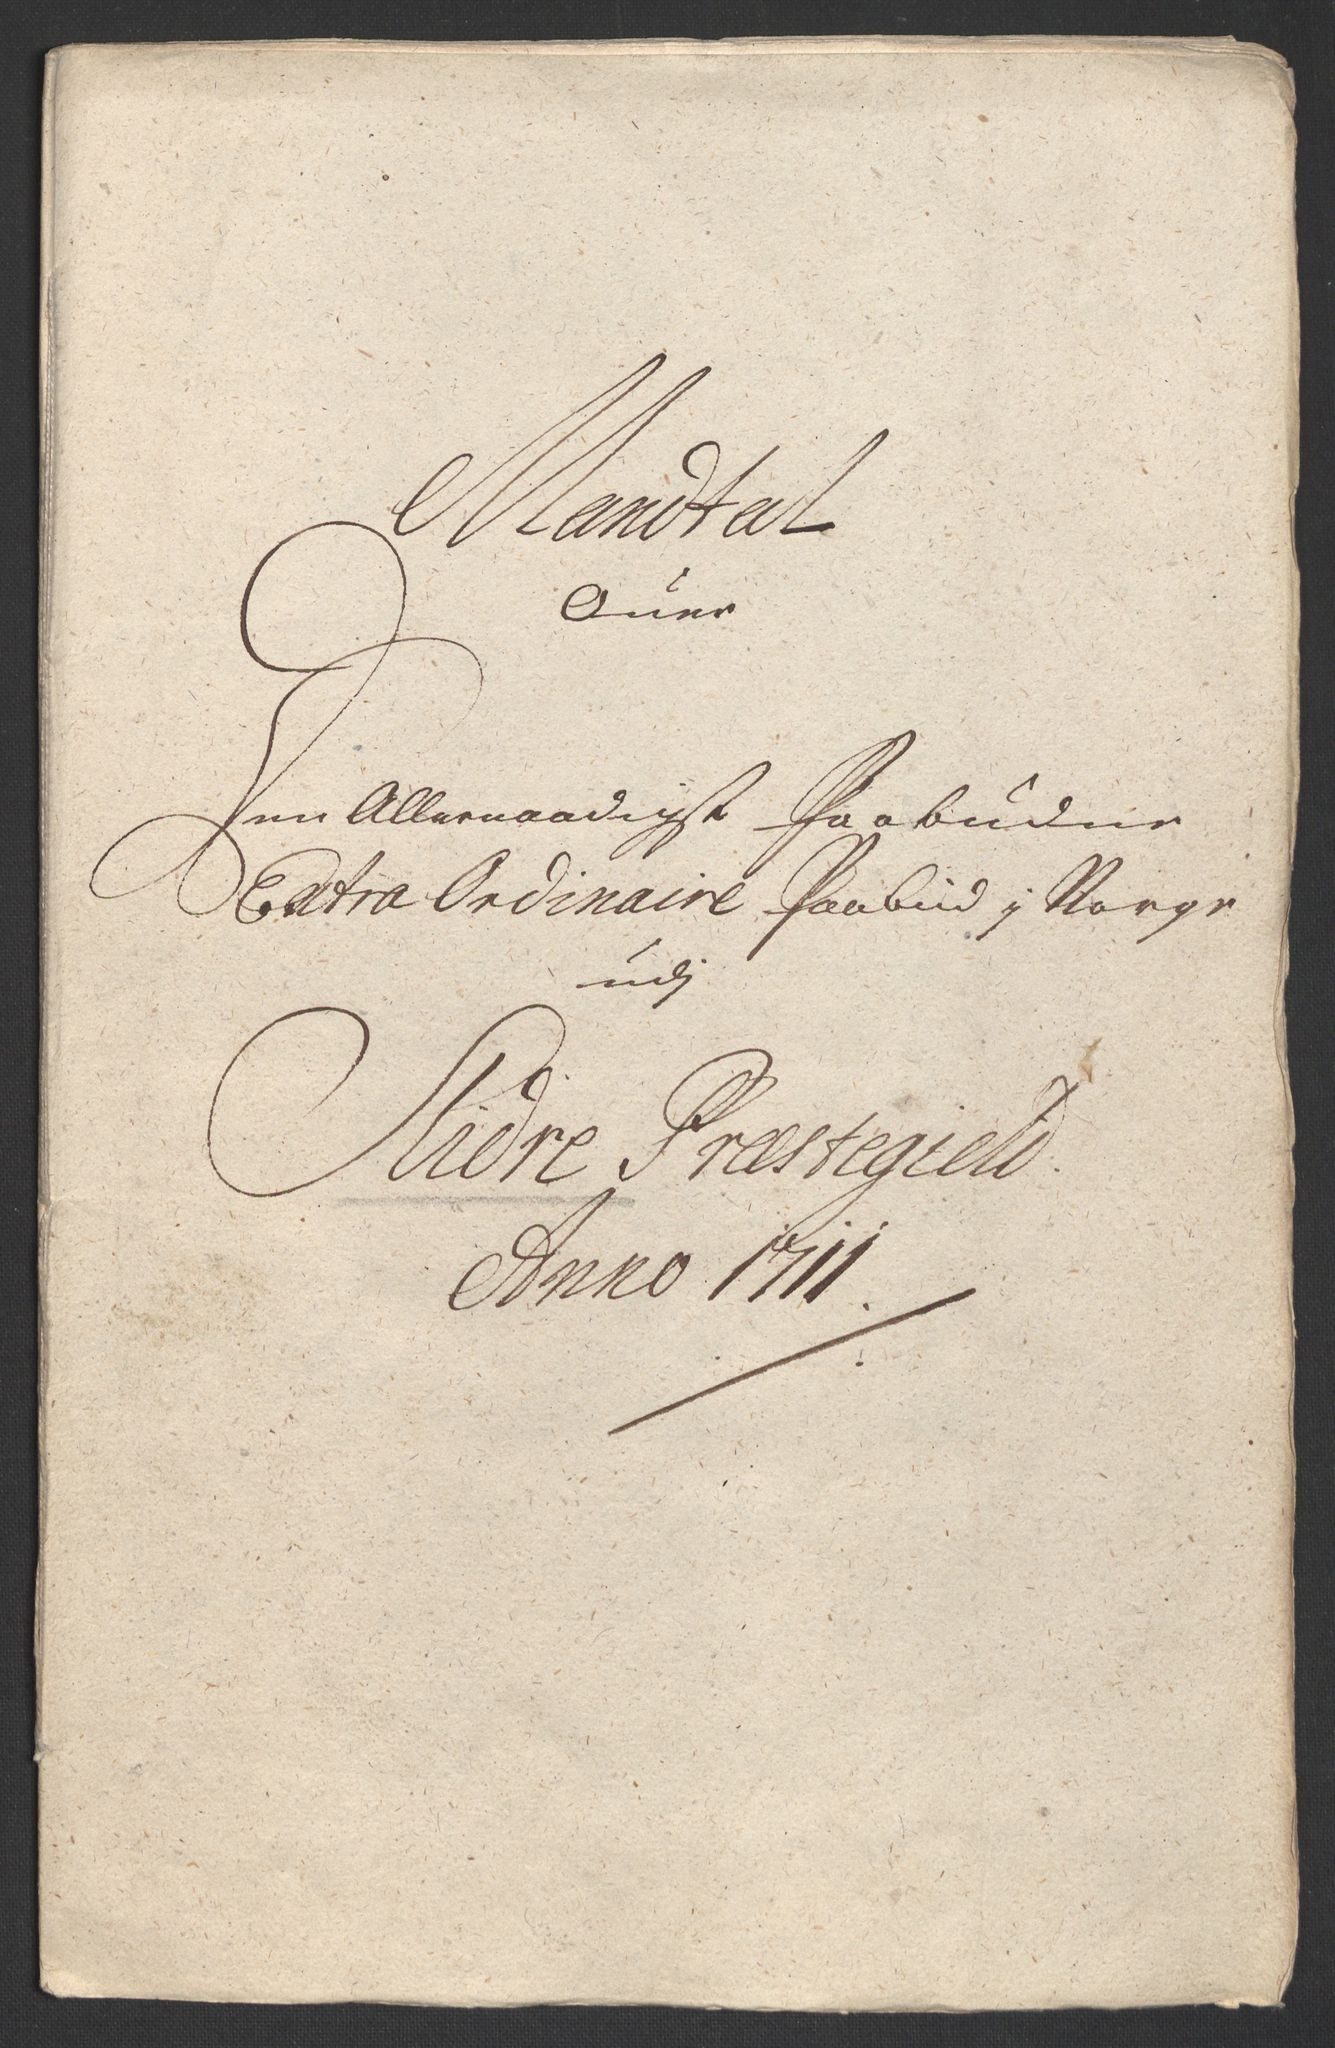 Mandtal
Ouer
Den Allernaadigst Paabudne
Extra Ordinaire Paabud j Norge
udj
Slidre Præstegield.
Anno 1711.